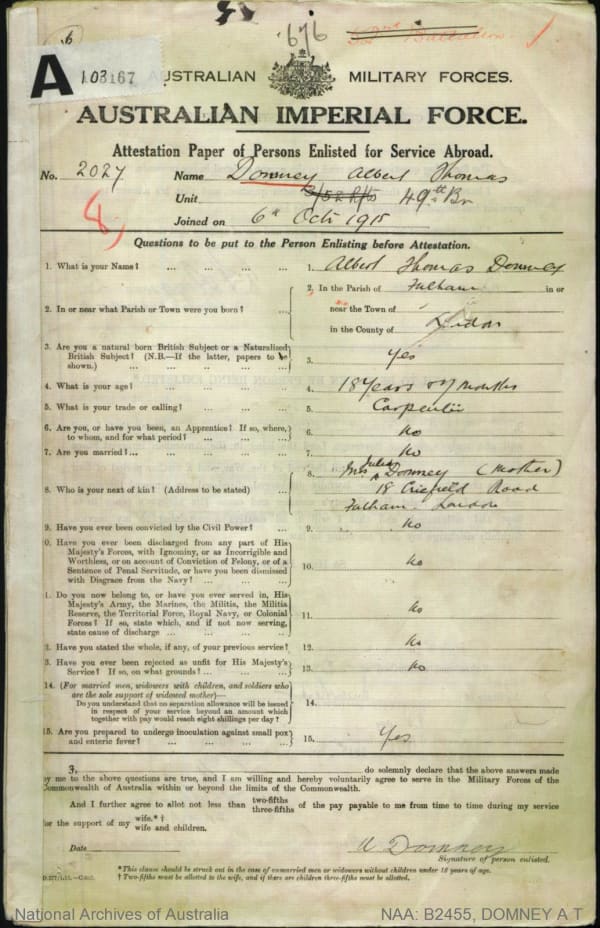 676
52nd Battalion
A 103167 AUSTRALIAN MILITARY FORCES.
AUSTRALIAN IMPERIAL FORCE.
Attestation Paper of Persons Enlisted for Service Abroad.
No. 2027 Name Domney Albert Thomas
Unit 49th Bn
Joined on 6th Oct 1915
8
Questions to be put to the Person Enlisting before Attestation.
1. What is your Name? ... ... ... ... 1. Albert Thomas Domney
2. In or near what Parish or Town were you born? ... 2. In the Parish of Fulham in or
near the Town of
in the County of
3. Are you a natural born British Subject or a Naturalized
British Subject? (N.B.—If the latter, papers to be
shown.) ... ... ... ... ... 3. Yes
4. What is your age? ... ... ... ... 4. 18 Years 07 months
5. What is your trade or calling? ... ... ... 5. Carpenter
6. Are you, or have you been, an Apprentice? If so, where,
to whom, and for what period? ... ... ... 6. No
7. Are you married? ... ... ... ... ... 7. No
8. Who is your next of kin? (Address to be stated) ... 8. Mrs Julia Domney (Mother)
18 Road
Fulham London
9. Have you ever been convicted by the Civil Power? ... 9. No
0. Have you ever been discharged from any part of His
Majesty's Forces, with Ignominy, or as Incorrigible and
Worthless, or on account of Conviction of Felony, or of a
Sentence of Penal Servitude, or have you been dismissed
with Disgrace from the Navy? ... ... ... 10. No
1. Do you now belong to, or have you ever served in, His
Majesty's Army, the Marines, the Militia, the Militia
Reserve, the Territorial Force, Royal Navy, or Colonial
Forces? If so, state which, and if not now serving,
state cause of discharge ... ... ... ... 11. No
2. Have you stated the whole, if any, of your previous service? 12. No
3. Have you ever been rejected as unfit for His Majesty's
Service? If so, on what grounds? ... ... ... 13. No
14. (For married men, widowers with children, and soldiers who
are the sole support of widowed mother)—
Do you understand that no separation allowance will be issued
in respect of your service beyond an amount which
together with pay would reach eight shillings per day? 14.
15. Are you prepared to undergo inoculation against small pox
and enteric fever? ... ... ... ... 15. Yes
I, do solemnly declare that the above answers made
by me to the above questions are true, and I am willing and hereby voluntarily agree to serve in the Military Forces of the
Commonwealth of Australia within or beyond the limits of the Commonwealth.
And I further agree to allot not less than two-fifths three-fifths of the pay payable to me from time to time during my service
for the support of my wife.*† wife and children.
Date
A Domney
Signature of person enlisted.
*This clause should be struck out in the case of unmarried men or widowers without children under 18 years of age.
† Two-fifths must be allotted to the wife, and if there are children three-fifths must be allotted.
National Archives of Australia NAA: B2455, DOMNEY A T